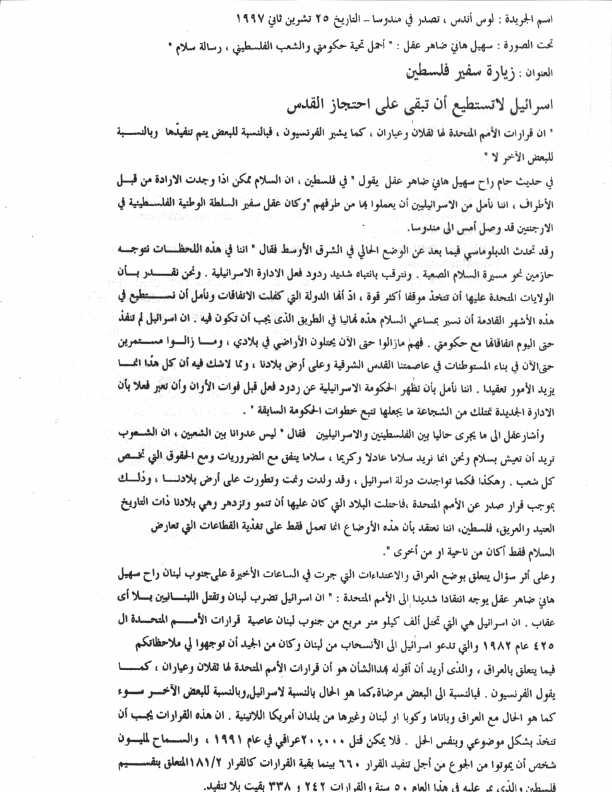 اسم الجريدة : لوس أندس ، تصدر في مندوسا – التاريخ ٢٥ تشرين ثاني ١٩٩٧
تحت الصورة : سهيل هاني ضاهر عقل : " أحمل تحية حكومتي والشعب الفلسطيني ، رسالة سلام "
العنوان : زيارة سفير فلسطين
اسرائيل لاتستطيع أن تبقى على احتجاز القدس
" ان قرارات الأمم المتحدة لها ثقلان وعياران ، كما يشير الفرنسيون ، فبالنسبة للبعض يتم تنفيذها وبالنسبة
للبعض الآخر لا "
في حديث حام راح سهيل هاني ضاهر عقل يقول " في فلسطين ، ان السلام ممكن اذا وجدت الارادة من قبل
الأطراف ، اننا نأمل من الاسرائيليين أن يعملوا بها من طرفهم "وكان عقل سفير السلطة الوطنية الفلسطينية في
الارجنتين قد وصل أمس الى مندوسا.
وقد تحدث الدبلوماسي فيما بعد عن الوضع الحالي في الشرق الأوسط فقال " اننا في هذه اللحظات نتوجه
حازمين نحو مسيرة السلام الصعبة . ونترقب بانتباه شديد ردود فعل الادارة الاسرائيلية . ونحن نقدر بأن
الولايات المتحدة عليها أن تتخذ موقفا أكثر قوة ، اذ أنها الدولة التي كفلت الاتفاقات ونأمل أن نستطيع في
هذه الأشهر القادمة أن نسير بمساعي السلام هذه نهائيا في الطريق الذى يجب أن تكون فيه . ان اسرائيل لم تنفذ
حتى اليوم اتفاقاتها مع حكومتي . فهم مازالوا حتى الآن يحتلون الأراضي في بلادي ، وما زالوا مستمرين
حتى الآن في بناء المستوطنات في عاصمتنا القدس الشرقية وعلى أرض بلادنا ، ومما لاشك فيه أن كل هذا انما
يزيد الأمور تعقيدا . اننا نأمل بأن تظهر الحكومة الاسرائيلية عن ردود فعل قبل فوات الأوان وأن تعبر فعلا بأن
الادارة الجديدة تمتلك من الشجاعة ما يجعلها تتبع خطوات الحكومة السابقة " .
وأشارعقل الى ما يجرى حاليا بين الفلسطينين والاسرائيليين فقال " ليس عدوانا بين الشعبين ، ان الشعوب
تريد أن تعيش بسلام ونحن انما نريد سلاما عادلا وكريما ، سلاما يتفق مع الضروريات ومع الحقوق التي تخص
كل شعب . وهكذا فكما تواجدت دولة اسرائيل ، وقد ولدت ونمت وتطورت على أرض بلادنا ، وذلك
بموجب قرار صدر عن الأمم المتحدة ،فاحتلت البلاد التي كان عليها أن تنمو وتزدهر وهي بلادنا ذات التاريخ
العتيد والعريق، فلسطين، اننا نعتقد بأن هذه الأوضاع انما تعمل فقط على تغذية القطاعات التي تعارض
السلام فقط أكان من ناحية او من أخرى ".
وعلى أثر سؤال يتعلق بوضع العراق والاعتداءات التي جرت في الساعات الأخيرة على جنوب لبنان راح سهيل
هاني ضاهر عقل يوجه انتقادا شديدا إلى الأمم المتحدة : " ان اسرائيل تضرب لبنان وتقتل اللبنانيين بلا أى
عقاب . ان اسرائيل هي التي تحتل ألف كيلو متر مربع من جنوب لبنان عاصية قرارات الأمم المتحدة ال
٤٢٥ عام ١٩٨٢ والتي تدعو اسرائيل الى الأنسحاب من لبنان وكان من الجيد أن توجهوا لي ملاحظاتكم
فيما يتعلق بالعراق ، والذى أريد أن أقوله بهذاالشأن هو أن قرارات الأمم المتحدة لها ثقلان وعياران ، كما
يقول الفرنسيون . فبالنسبة الى البعض مرضاة،كما هو الحال بالنسبة لاسرائيل,وبالنسبة للبعض الآخر سوء
كما هو الحال مع العراق وباناما وكوبا او لبنان وغيرها من بلدان أمريكا اللاتينية . ان هذه القرارات يجب أن
تتخذ بشكل موضوعي وبنفس الحل . فلا يمكن قتل ٢٠٠,٠٠٠عراقي في عام ١٩٩١ ، والسماح لمليون
شخص أن يموتوا من الجوع من أجل تنفيذ القرار ٦٦٠ بينما بقية القرارات كالقرار ١٨١/٢المتعلق بتقسيم
فلسطين والذى يمر عليه في هذا العام ٥٠ سنة والقرارات ٢٤٢ و ٣٣٨ بقيت بلا تنفيذ.